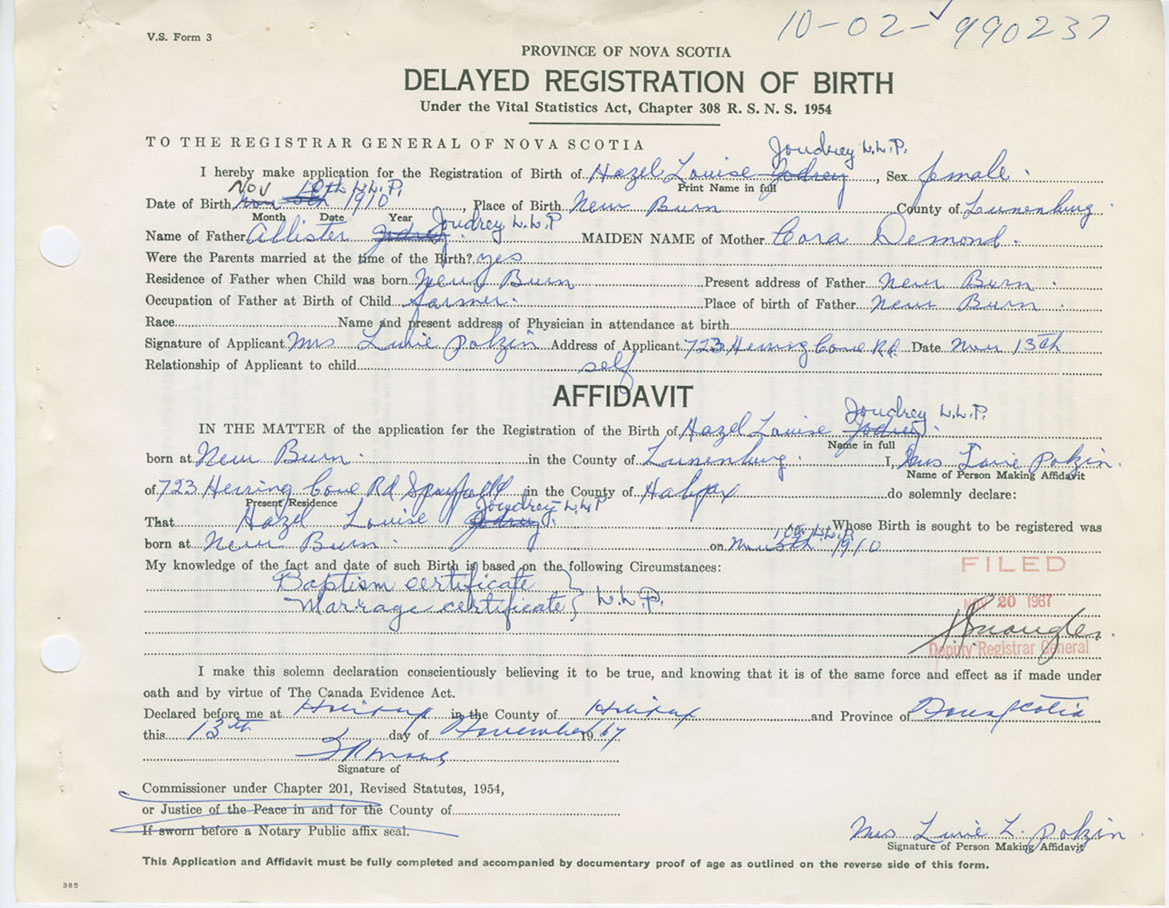 10-02-990237
V.S. Form 3
PROVINCE OF NOVA SCOTIA
DELAYED REGISTRATION OF BIRTH
Under the Vital Statistics Act, Chapter 308 R. S. N. S. 1954
TO THE REGISTRAR GENERAL OF NOVA SCOTIA
Joudrey L.L.P.
I hereby make application for the Registration of Birth of Hazel Louise Jodrey, Sex female.
Print Name in full
Nov 10th L.L.P.
Date of Birth Nov 5th 1910, Place of Birth New Burn County of Lunenburg.
Month Date Year
Joudrey L.L.P
Name of Father Allister Jodrey. MAIDEN NAME of Mother Cora Demond.
Were the Parents married at the time of the Birth? yes
Residence of Father when Child was born New Burn Present address of Father New Burn.
Occupation of Father at Birth of Child farmer. Place of birth of Father New Burn.
Race Name and present address of Physician in attendance at birth
Signature of Applicant Mrs polzin Address of Applicant 723 Herring Cove Rd. Date Nov 13th
Relationship of Applicant to child self
AFFIDAVIT
Joudrey L.L.P.
IN THE MATTER of the application for the Registration of the Birth of Hazel Louise Jodrey.
Name in full
born at New Burn. in the County of Lunenburg. I, Mrs polzin.
Name of Person Making Affidavit
of 723 Herring Cove Rd Spryfield in the County of Halifax do solemnly declare:
Present Residence
Joudrey L.L.P
That Hazel Louise Jodrey. Whose Birth is sought to be registered was
10th L.L.P.
born at New Burn. on Nov 5th 1910
My knowledge of the fact and date of such Birth is based on the following Circumstances:
Baptism certificate
Marrage certificate } L.L.P.
FILED
20 1967
Deputy Registrar General
I make this solemn declaration conscientiously believing it to be true, and knowing that it is of the same force and effect as if made under
oath and by virtue of The Canada Evidence Act.
Declared before me at Halifax in the County of Halifax and Province of Nova Scotia
this 13th day of November 1967
Signature of
Commissioner under Chapter 201, Revised Statutes, 1954,
or Justice of the Peace in and for the County of
If sworn before a Notary Public affix seal.
Mrs L. polzin.
Signature of Person Making Affidavit
This Application and Affidavit must be fully completed and accompanied by documentary proof of age as outlined on the reverse side of this form.
385